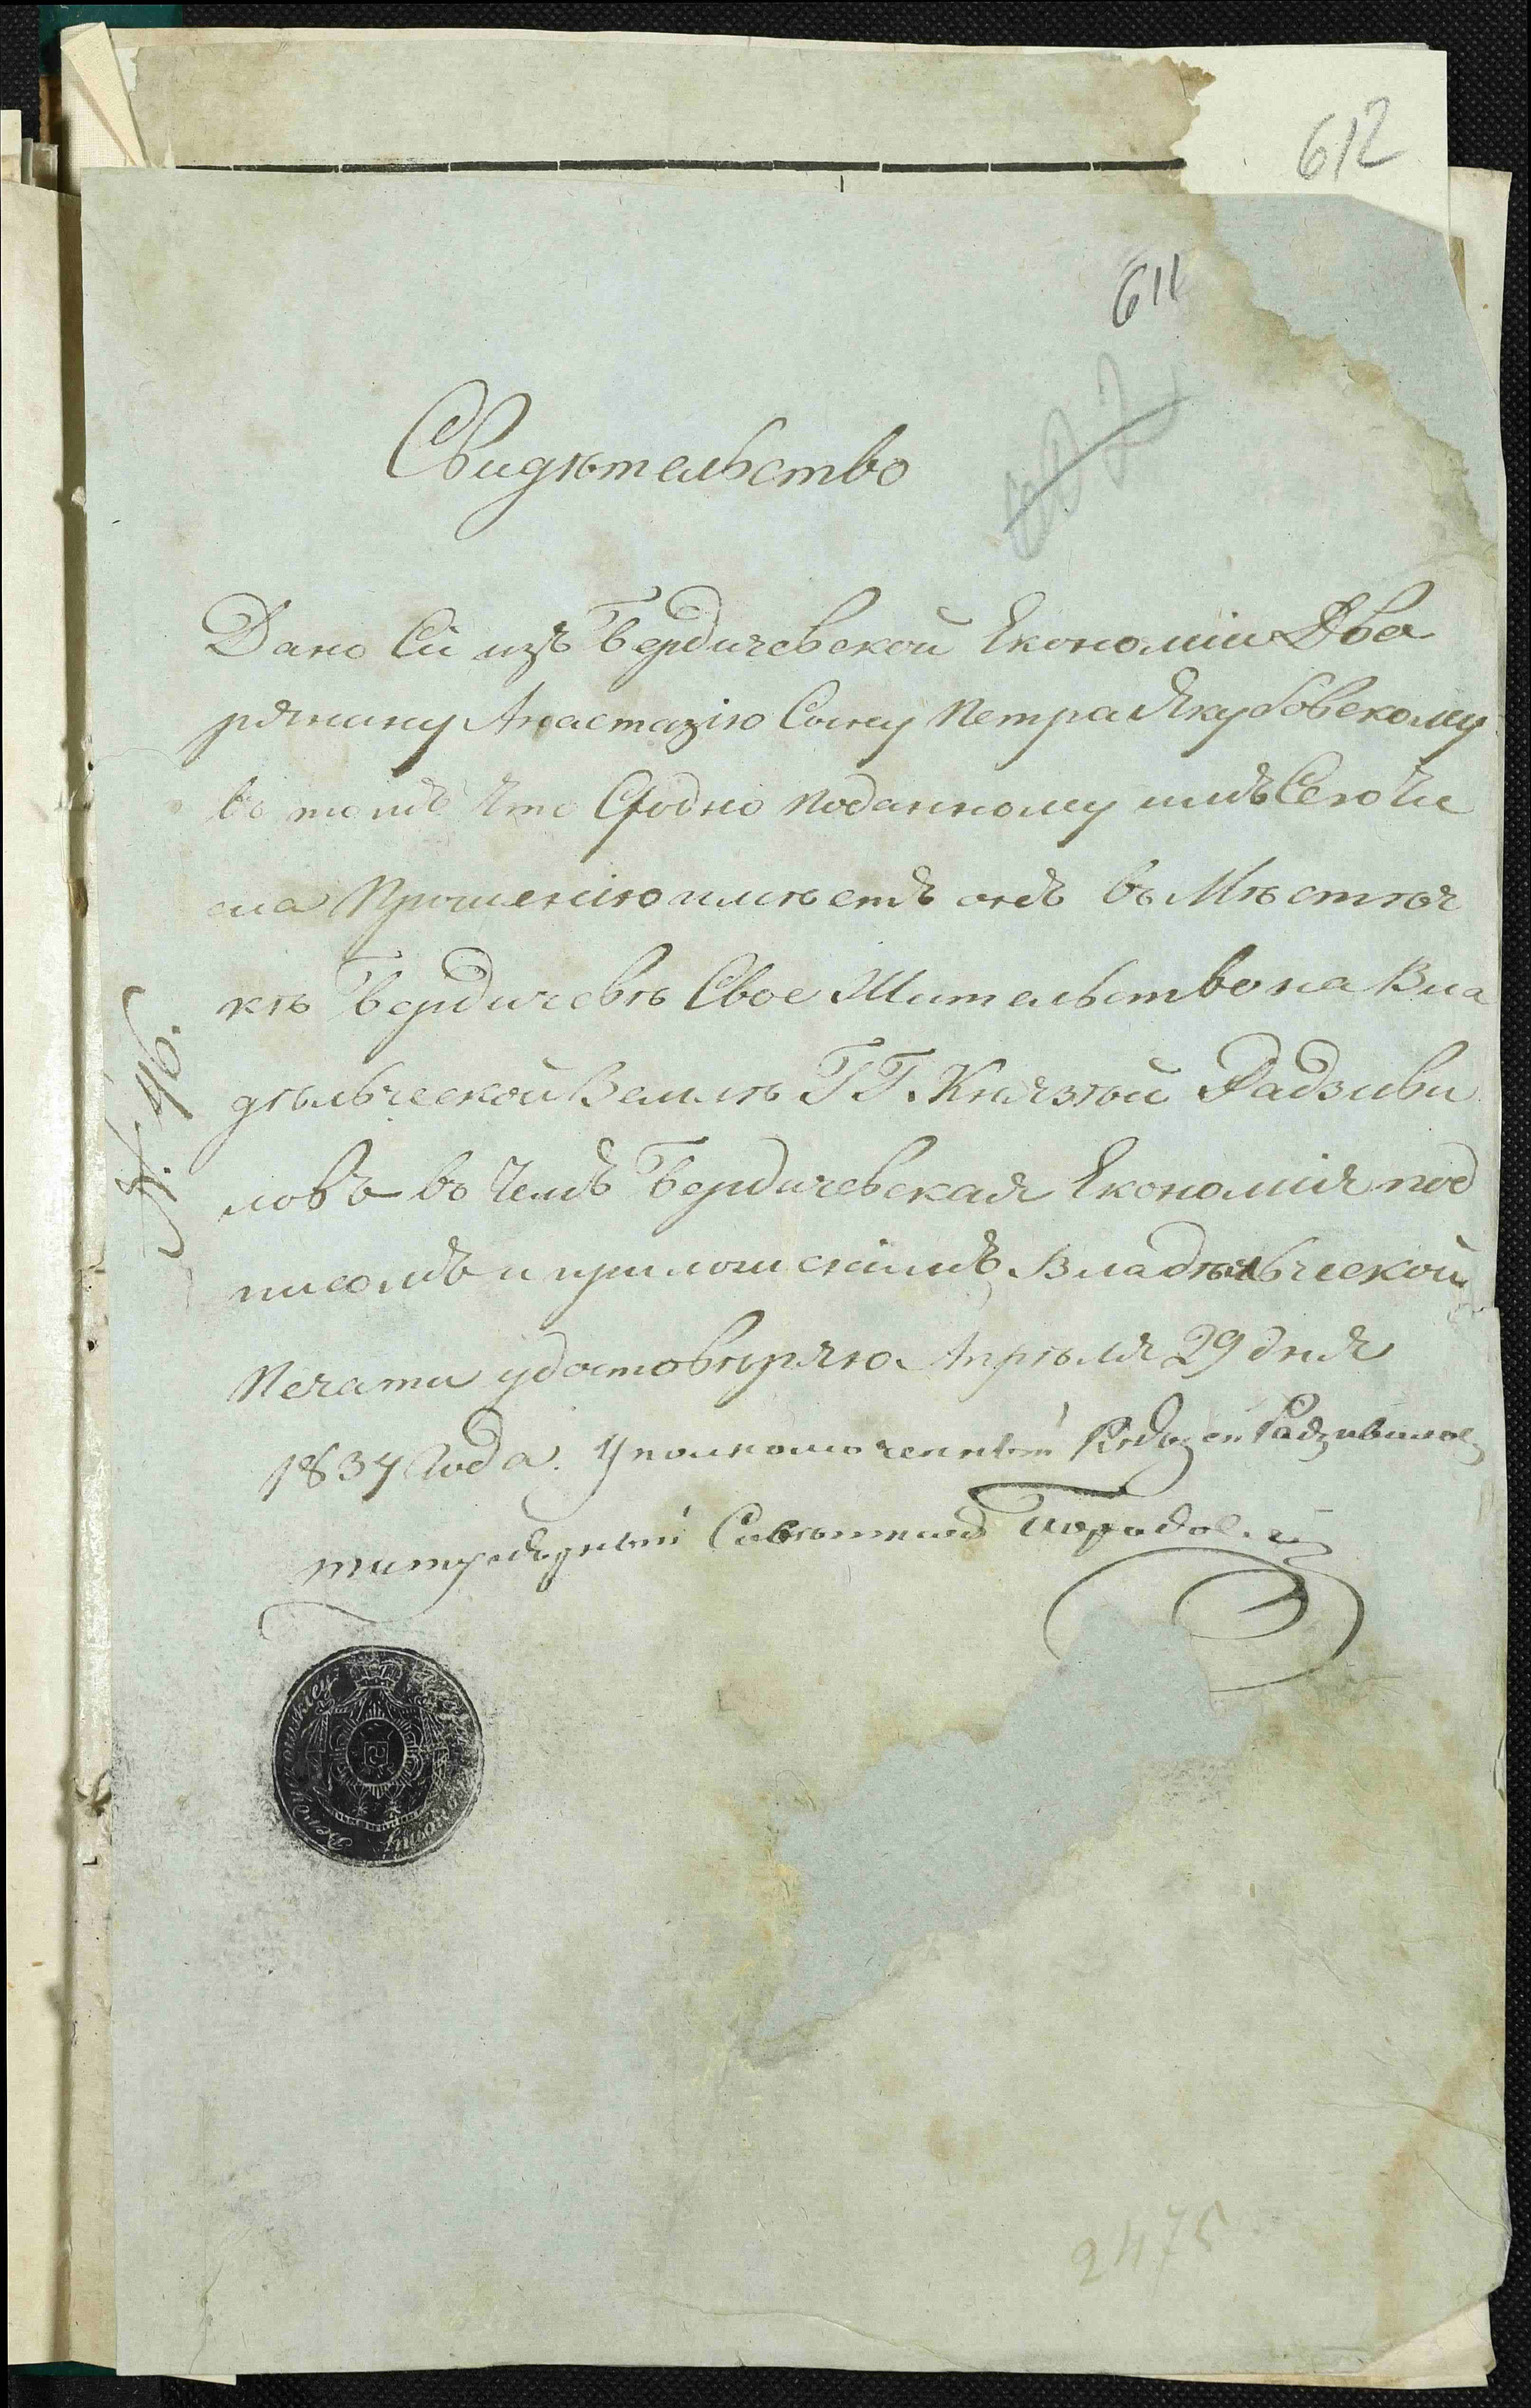 612
611
Свидѣтельство
Дано Сіе изъ Бердичевской Економіи Двa
рянину Анастазію Сыну Петра Якубовскому
въ томъ Что Сходно поданному имъ Сего Чи
сла Прошенію имѣетъ онъ въ Мѣстеч
кѣ Бердичевѣ Свое Жительство на Вла
дѣльческой Землѣ ГГ. Князѣй Радзиви
ловъ въ Чемъ Бердичевская Економія под
писомъ и приложеніимъ Владѣльческой
Печати удостовѣряю. Апрѣля 29 дня
1834 Года. Уполномоченный Князей Радзивиловъ
титулярный Совѣтникъ
N. 46.
2475